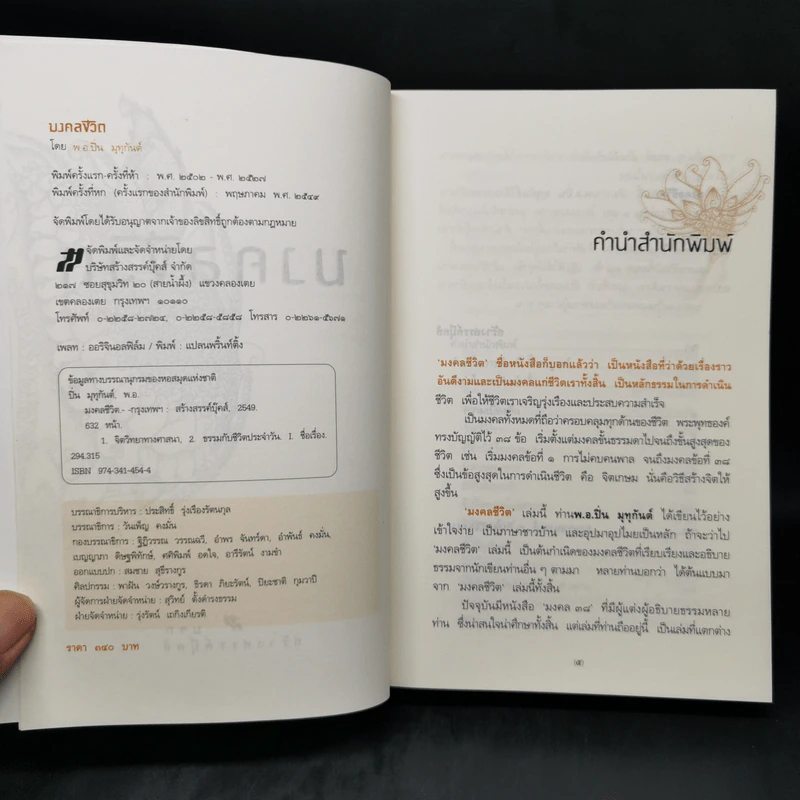 มงคลชีวิต
โดย พ.อ.ปิ่น มุทุกันต์
พิมพ์ครั้งแรก-ครั้งที่ห้า : พ.ศ. ๒๕๐๒ - พ.ศ. ๒๕๒๗
พิมพ์ครั้งที่หก (ครั้งแรกของสำนักพิมพ์) : พฤษภาคม พ.ศ. ๒๕๔๙
จัดพิมพ์โดยได้รับอนุญาตจากเจ้าของลิขสิทธิ์ถูกต้องตามกฎหมาย
จัดพิมพ์และจัดจำหน่ายโดย
บริษัทสร้างสรรค์บุ๊คส์ จำกัด
๒๑๗ ซอยสุขุมวิท ๒๐ (สายน้ำผึ้ง) แขวงคลองเตย
เขตคลองเตย กรุงเทพฯ ๑๐๑๑๐
โทรศัพท์ ๐-๒๒๕๘-๒๗๒๔, ๐-๒๒๕๘-๕๘๕๘ โทรสาร ๐-๒๒๖๑-๕๖๗๑
เพลท : ออริจินอลฟิล์ม / พิมพ์ : แปลนพริ้นท์ติ้ง
ข้อมูลทางบรรณานุกรมของหอสมุดแห่งชาติ
ปิ่น มุทุกันต์, พ.อ.
มงคลชีวิต.- -กรุงเทพฯ : สร้างสรรค์บุ๊คส์, 2549.
632 หน้า.
1. จิตวิทยาทางศาสนา, 2. ธรรมกับชีวิตประจำวัน. I. ชื่อเรื่อง.
294.315
ISBN 974-341-454-4
บรรณาธิการบริหาร : ประสิทธิ์ รุ่งเรืองรัตนกุล
บรรณาธิการ : วันเพ็ญ คงมั่น
กองบรรณาธิการ : ฐิฏิวรรณ วรรณฉวี, อำพร จันทร์ดา, อำพันธ์ คงมั่น,
เบญญาภา ดิษฐพิทักษ์, ศศิพิมพ์ อดใจ, อารีรัตน์ งามขำ
ออกแบบปก : สมชาย สุธีรางกูร
ศิลปกรรม : พาฝัน วงษ์วรางกูร, ธิรดา ภิยะรัตน์, ปิยะชาติ กุมวาปี
ผู้จัดการฝ่ายจัดจำหน่าย : สุวิทย์ ตั้งดำรงธรรม
ฝ่ายจัดจำหน่าย : รุ่งรัตน์ เถกิงเกียรติ
ราคา ๓๔๐ บาท
คำนำสำนักพิมพ์
'มงคลชีวิต' ชื่อหนังสือก็บอกแล้วว่า เป็นหนังสือที่ว่าด้วยเรื่องราว
อันดีงามและเป็นมงคลแก่ชีวิตเราทั้งสิ้น เป็นหลักธรรมในการดำเนิน
ชีวิต เพื่อให้ชีวิตเราเจริญรุ่งเรืองและประสบความสำเร็จ
เป็นมงคลทั้งหมดที่ถือว่าครอบคลุมทุกด้านของชีวิต พระพุทธองค์
ทรงบัญญัติไว้ ๓๘ ข้อ เริ่มตั้งแต่มงคลขั้นธรรมดาไปจนถึงขั้นสูงสุดของ
ชีวิต เช่น เริ่มมงคลข้อที่ ๑ การไม่คบคนพาล จนถึงมงคลข้อที่ ๓๘
ซึ่งเป็นข้อสูงสุดในการดำเนินชีวิต คือ จิตเกษม นั่นคือวิธีสร้างจิตให้
สูงขึ้น
'มงคลชีวิต' เล่มนี้ ท่านพ.อ.ปิ่น มุทุกันต์ ได้เขียนไว้อย่าง
เข้าใจง่าย เป็นภาษาชาวบ้าน และอุปมาอุปไมยเป็นหลัก ถ้าจะว่าไป
'มงคลชีวิต' เล่มนี้ เป็นต้นกำเนิดของมงคลชีวิตที่เรียบเรียงและอธิบาย
ธรรมจากนักเขียนท่านอื่น ๆ ตามมา หลายท่านบอกว่า ได้ต้นแบบมา
จาก 'มงคลชีวิต' เล่มนี้ทั้งสิ้น
ปัจจุบันมีหนังสือ 'มงคล ๓๘' ที่มีผู้แต่งผู้อธิบายธรรมหลาย
ท่าน ซึ่งน่าสนใจน่าศึกษาทั้งสิ้น แต่เล่มที่ท่านถืออยู่นี้ เป็นเล่มที่แตกต่าง
(๕)